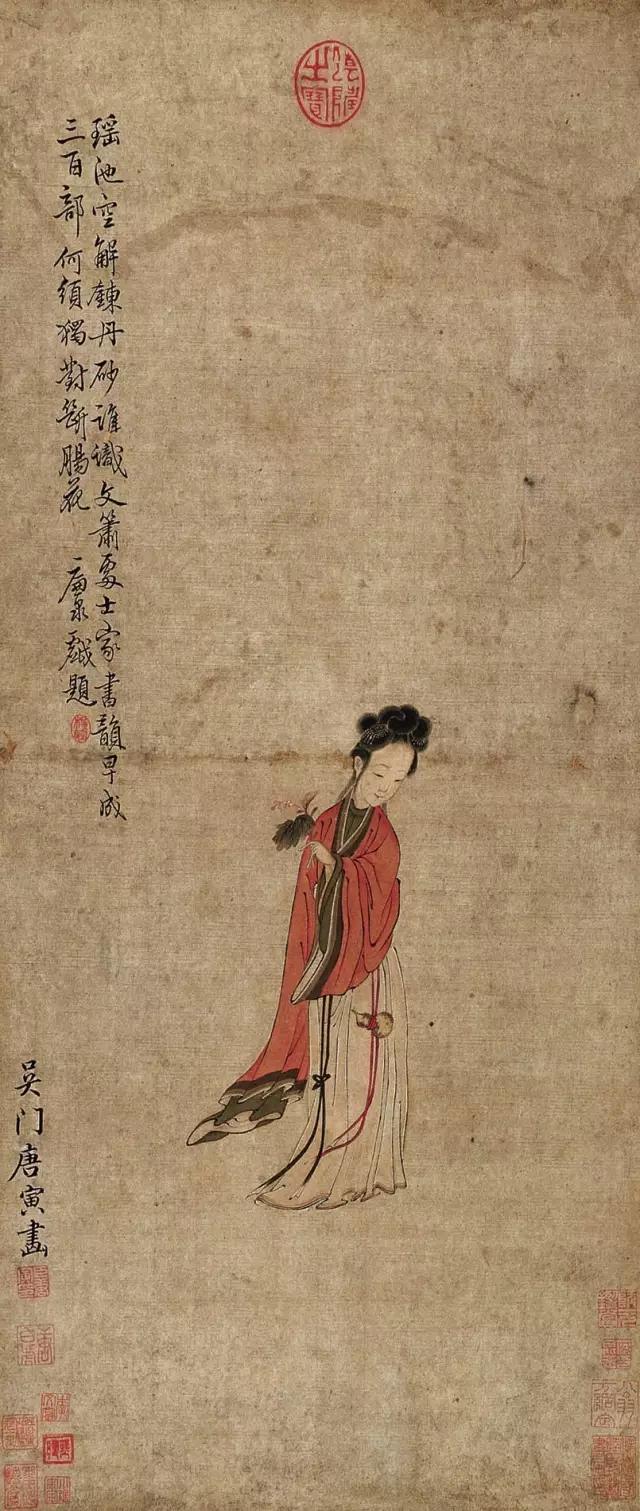 瑶池空解鍊丹砂誰識文簫處士家書韻早成
三百部何須獨對斷腸花 廉泉戲題
吳门唐寅畫